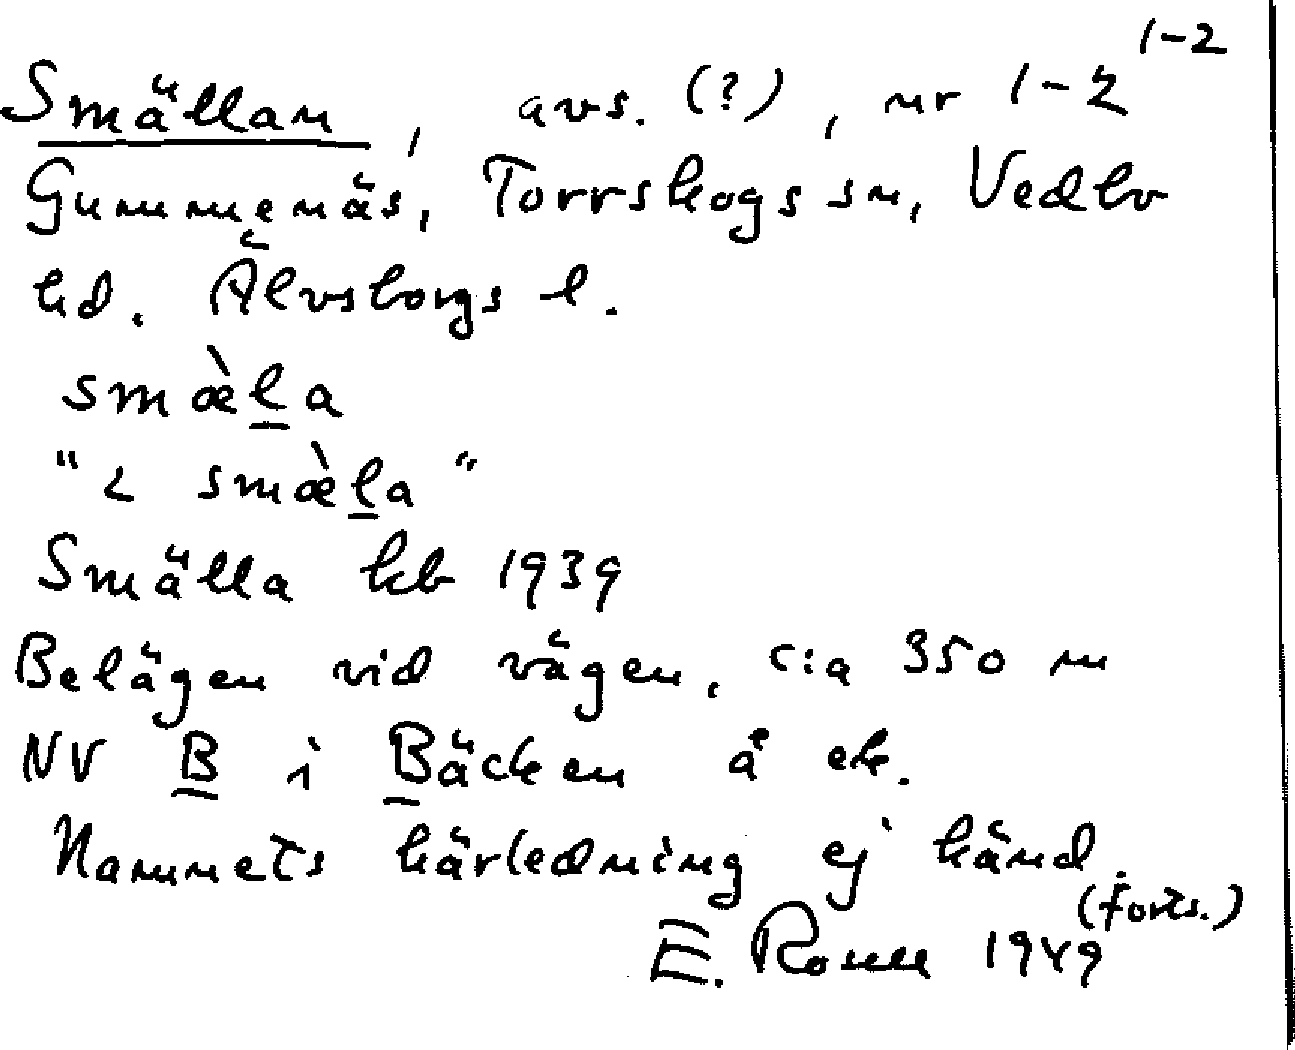 1-2
Smällan, avs. (?), nr 1-2
Gummenäs, Torrskogs sn, Vedbo
hd. Älvsborgs l.
smæ̀l̲a
"< smæ̀l̲a"
Smälla kb 1939
Belägen vid vägen, c:a 350 m
NV B i Bäcken å ek.
Namnets härledning ej känd.
(forts.)
E. 1949